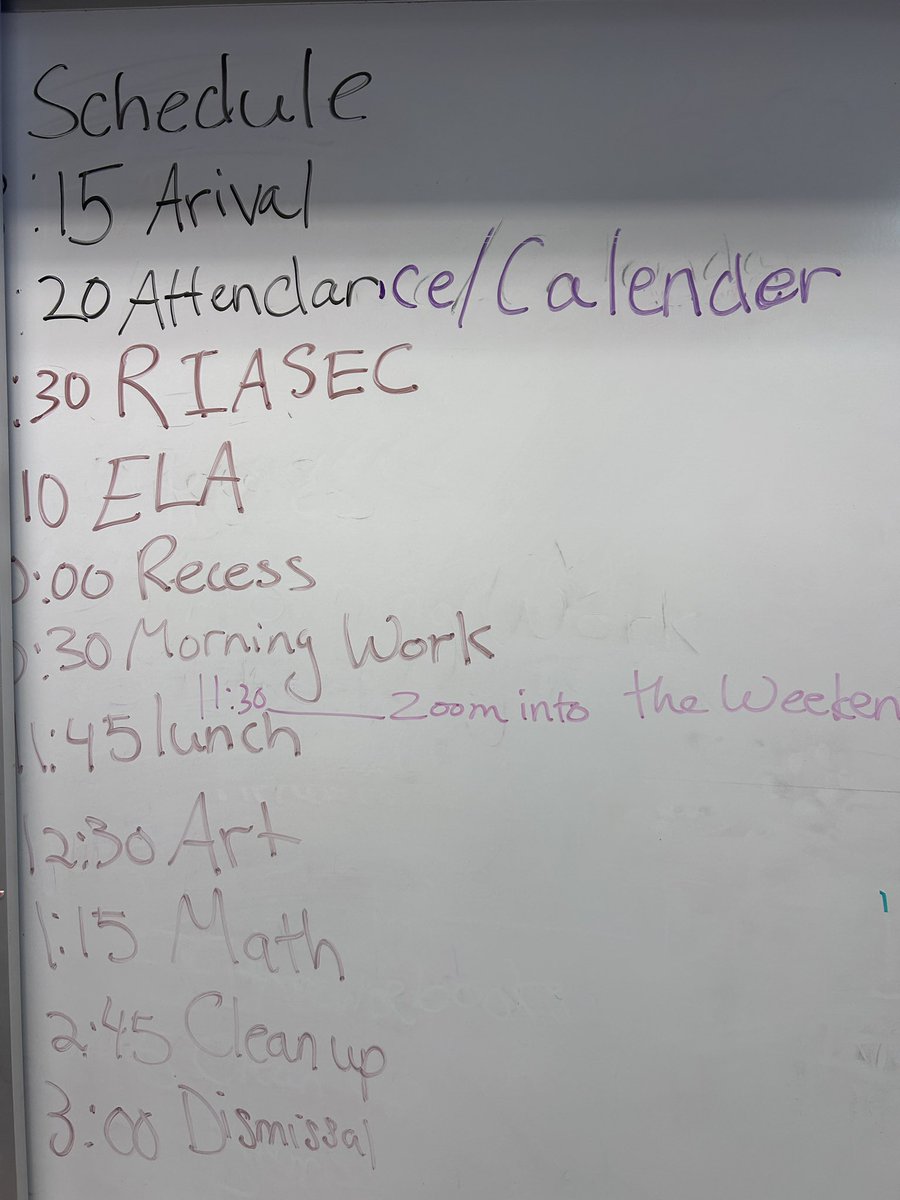 Schedule
:15 Arival
:20 Attendance/Calender
:30 RIASEC
10 ELA
0:00 Recess
0:30 Morning Work
11:30 Zoom into the Weeken
11:45 lunch
12:30 Art
1:15 Math
2:45 Clean up
3:00 Dismissal